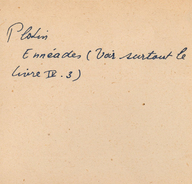 Plotin
Ennéades (Voir surtout le
livre IV. 3)